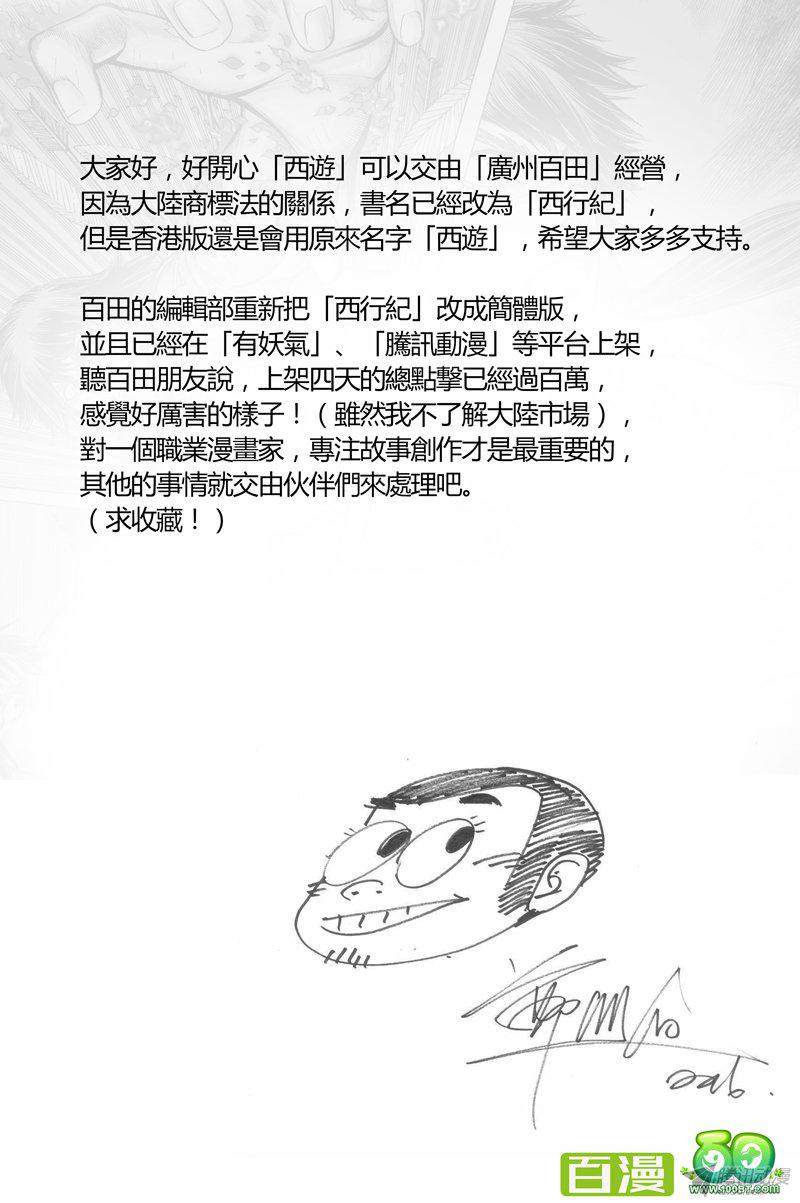 大家好，好開心「西遊」可以交由「廣州百田」經營，
因為大陸商標法的關係，書名已經改為「西行紀」，
但是香港版還是會用原來名字「西遊」，希望大家多多支持。
百田的編輯部重新把「西行紀」改成簡體版，
並且已經在「有妖氣」、「騰訊動漫」等平台上架，
聽百田朋友說，上架四天的總點擊已經過百萬，
感覺好厲害的樣子！（雖然我不了解大陸市場），
對一個職業漫畫家，專注故事創作才是最重要的，
其他的事情就交由伙伴們來處理吧。
（求收藏！）
百漫
腾讯动漫
www.100BT.com